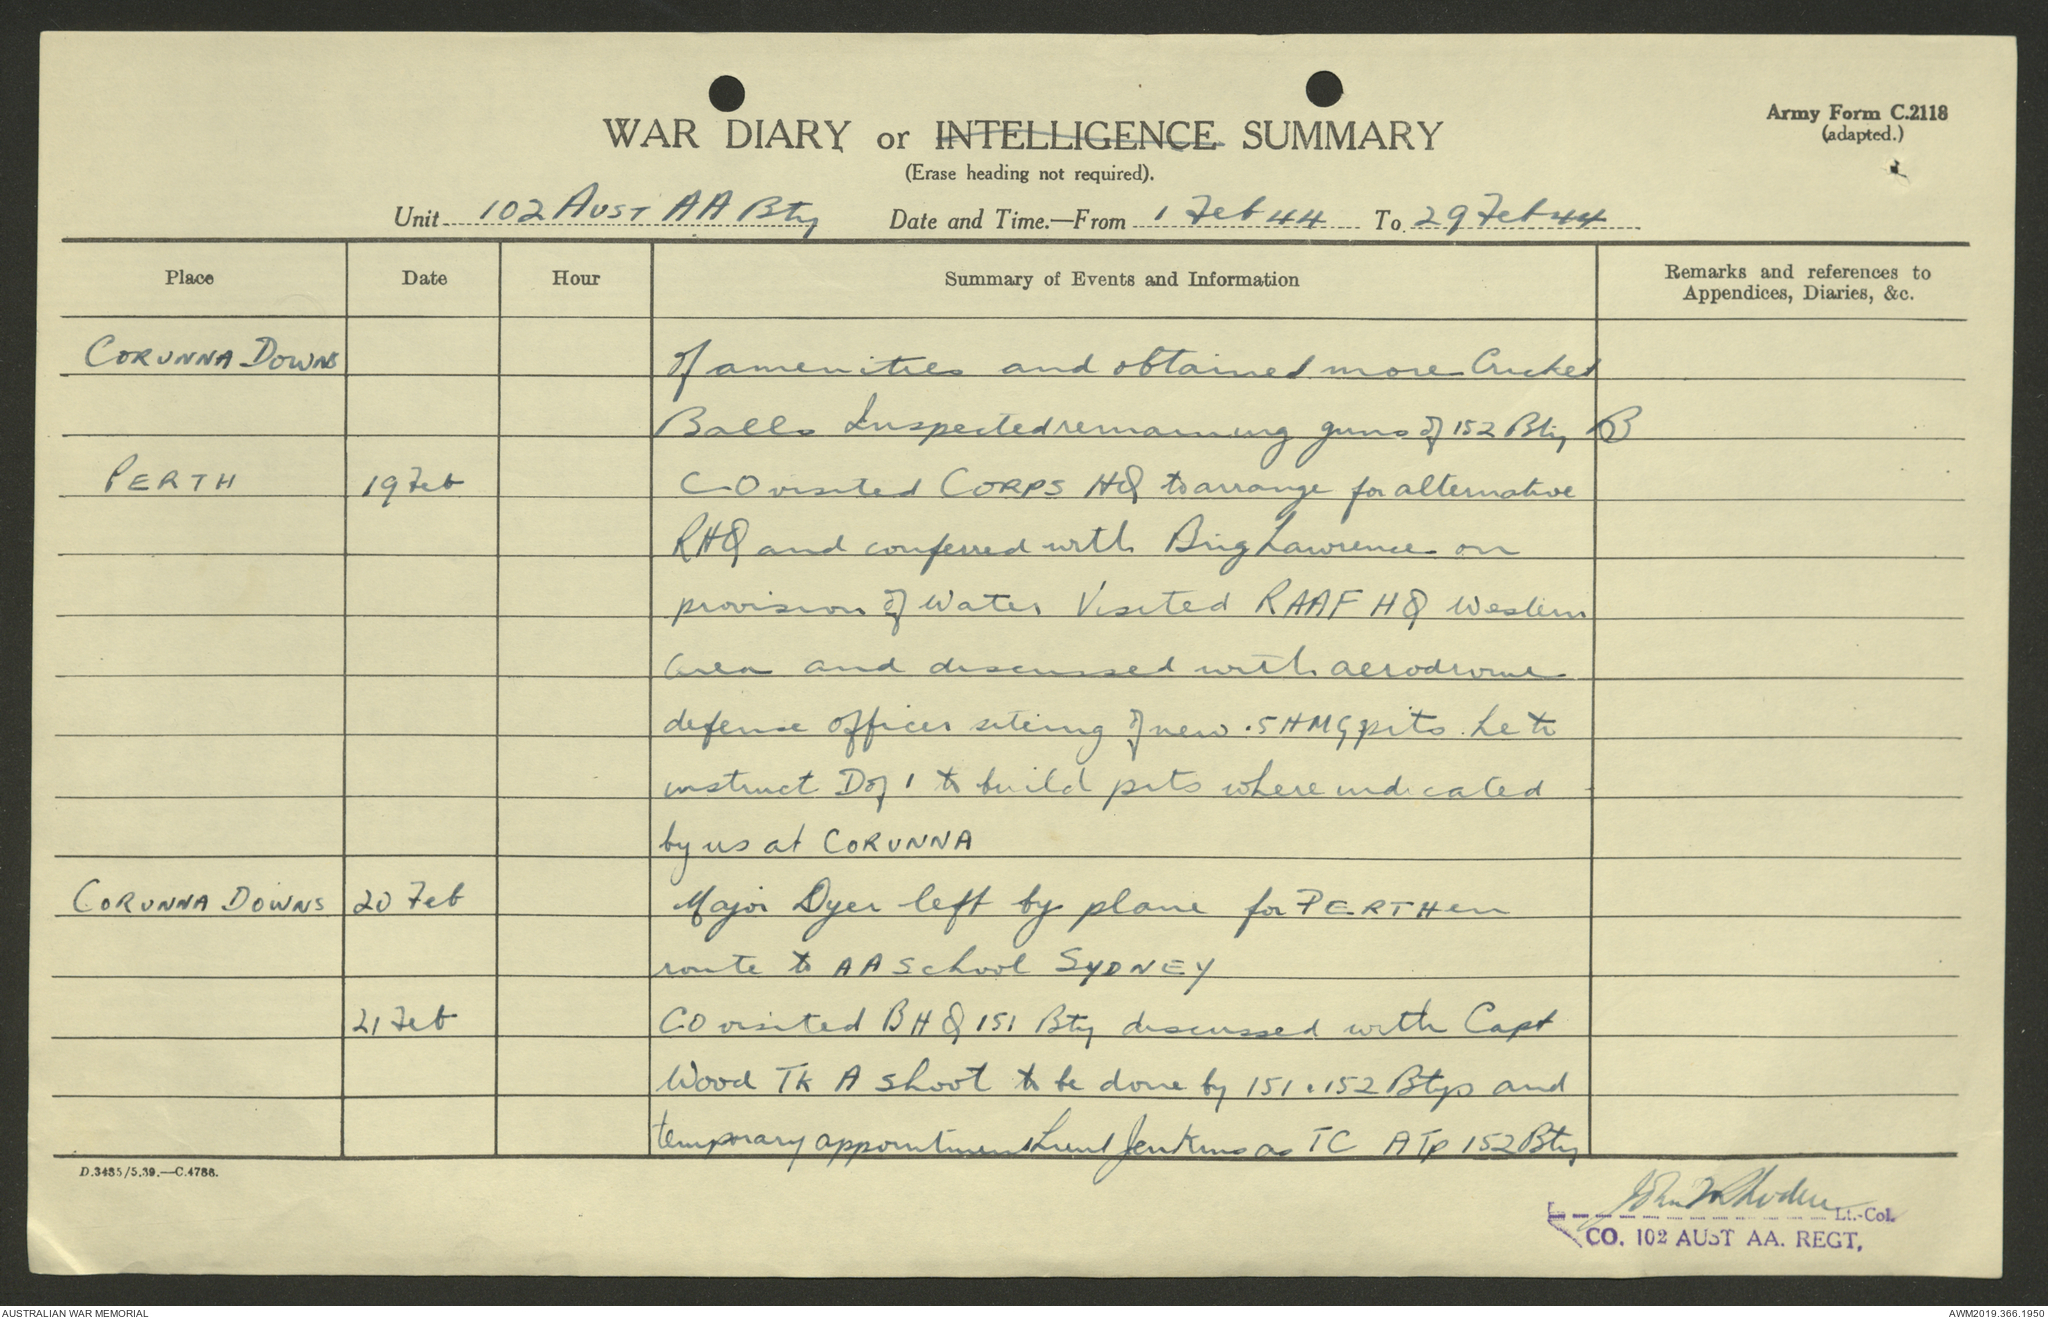 Army Form C.2118
(adapted.)
WAR DIARY or INTELLIGENCE SUMMARY
(Erase heading not required).
Unit 102 AUST AA Bty Date and Time.—From 1 Feb 44 To 29 Feb 44
Place Date Hour Summary of Events and Information Remarks and references to
Appendices, Diaries, &c.
CORUNNA DOWNS of amenities and obtained more Cricket
Balls Inspected remaining guns of 152 Bty B
PERTH 19 Feb CO visited CORPS HQ to arrange for alternative
RHQ and conferred with Brig Lawrence on
provision of water. Visited RAAF HQ Western
Area and discussed with aerodrome
defense officer siteing of new .5 HMG pits. he to
instruct D of 1 to build pits where indicated
by us at CORUNNA
CORUNNA DOWNS 20 Feb Major Dyer left by plane for PERTH en
route to AA School SYDNEY
21 Feb CO visited BHQ 151 Bty discussed with Capt
Wood TK A shoot to be done by 151 . 152 Btys and
temporary appointment Lieut Jenkins as TC A Tp 152 Bty
D.3485/5.39.—C.4788.
Lt.-Col.
CO. 102 AUST AA. REGT,
AUSTRALIAN WAR MEMORIAL AWM2019.366.1950